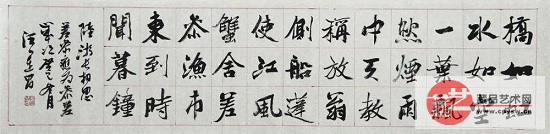 橋如虹
水如空
一葉飄
然煙雨
中天教
稱放翁
側船篷
使江風
蟹舍差
参漁市
東到時
聞暮鐘
陸游長相思
差參應為參差
歲次癸巳冬月
艺术网